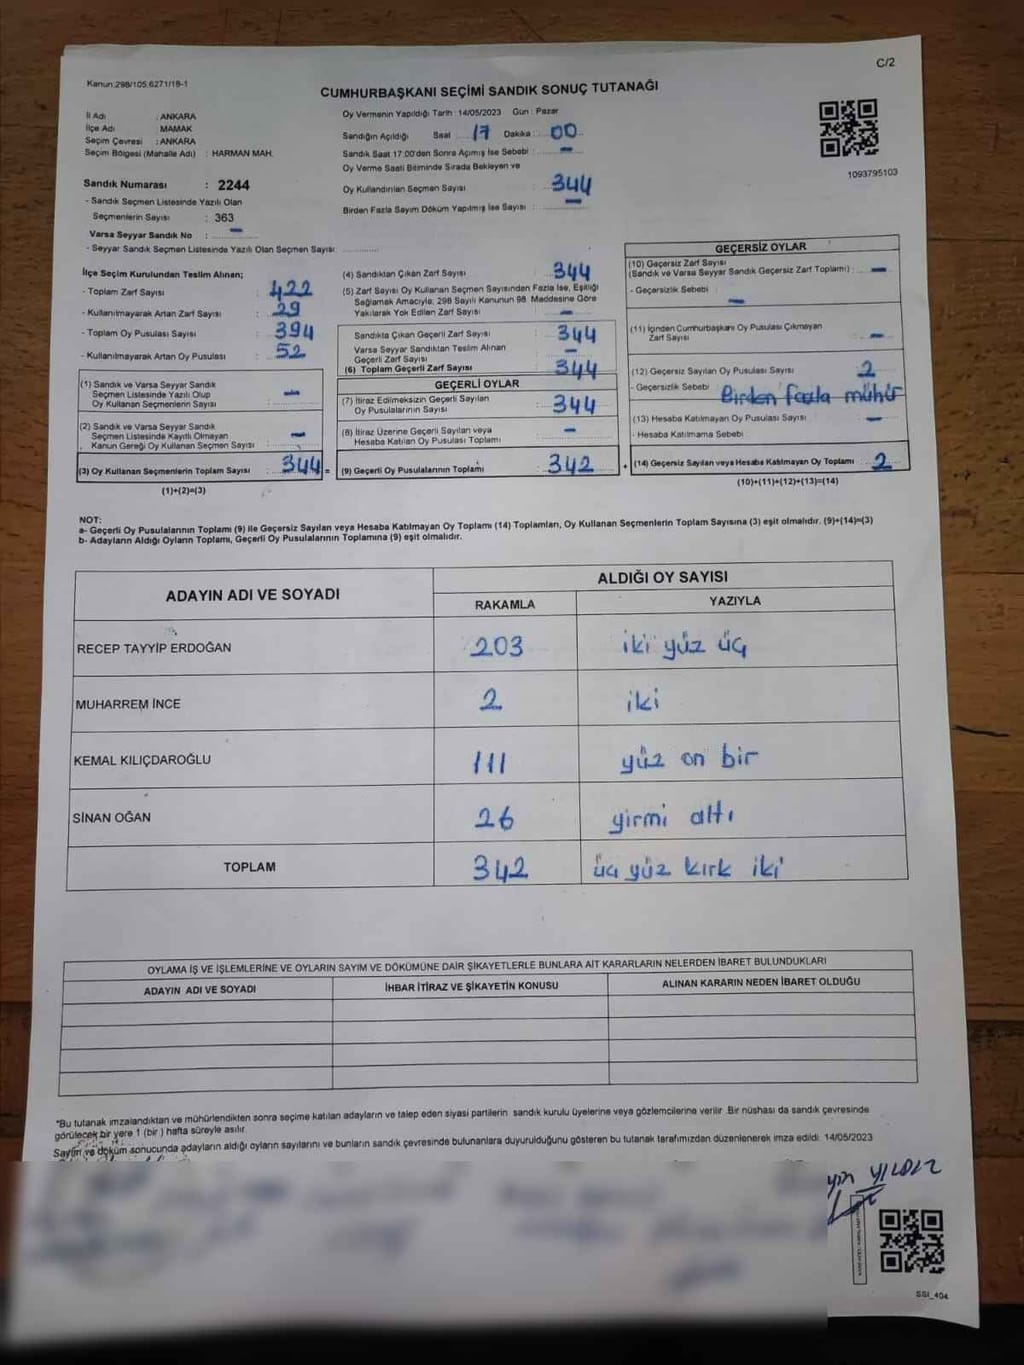 C/2
Kanun:298/105;6271/18-1
CUMHURBAŞKANI SEÇİMİ SANDIK SONUÇ TUTANAĞI
İl Adı : ANKARA
İlçe Adı : MAMAK
Seçim Çevresi : ANKARA
Seçim Bölgesi (Mahalle Adı) : HARMAN MAH.
Sandık Numarası : 2244
- Sandık Seçmen Listesinde Yazılı Olan
Seçmenlerin Sayısı : 363
Varsa Seyyar Sandık No : –
- Seyyar Sandık Seçmen Listesinde Yazılı Olan Seçmen Sayısı:
Oy Vermenin Yapıldığı Tarih : 14/05/2023 Gün : Pazar
Sandığın Açıldığı Saat 17 Dakika : 00
Sandık Saat 17:00'den Sonra Açımış İse Sebebi : –
Oy Verme Saati Bitiminde Sırada Bekleyen ve
Oy Kullandırılan Seçmen Sayısı : 344
Birden Fazla Sayım Döküm Yapılmış İse Sayısı : –
1093795103
İlçe Seçim Kurulundan Teslim Alınan;
- Toplam Zarf Sayısı : 422
- Kullanılmayarak Artan Zarf Sayısı : 29
- Toplam Oy Pusulası Sayısı : 394
- Kullanılmayarak Artan Oy Pusulası : 52
(1) Sandık ve Varsa Seyyar Sandık
Seçmen Listesinde Yazılı Olup
Oy Kullanan Seçmenlerin Sayısı : –
(2) Sandık ve Varsa Seyyar Sandık
Seçmen Listesinde Kayıtlı Olmayan
Kanun Gereği Oy Kullanan Seçmen Sayısı : –
(3) Oy Kullanan Seçmenlerin Toplam Sayısı : 344 =
(1)+(2)=(3)
(4) Sandıktan Çıkan Zarf Sayısı : 344
(5) Zarf Sayısı Oy Kullanan Seçmen Sayısından Fazla İse, Eşitliği
Sağlamak Amacıyla; 298 Sayılı Kanunun 98. Maddesine Göre
Yakılarak Yok Edilen Zarf Sayısı : –
Sandıkta Çıkan Geçerli Zarf Sayısı : 344
Varsa Seyyar Sandıktan Teslim Alınan
Geçerli Zarf Sayısı : –
(6) Toplam Geçerli Zarf Sayısı : 344
GEÇERLİ OYLAR
(7) İtiraz Edilmeksizin Geçerli Sayılan
Oy Pusulalarının Sayısı : 344
(8) İtiraz Üzerine Geçerli Sayılan veya
Hesaba Katılan Oy Pusulası Toplamı : –
(9) Geçerli Oy Pusulalarının Toplamı : 342 +
GEÇERSİZ OYLAR
(10) Geçersiz Zarf Sayısı
(Sandık ve Varsa Seyyar Sandık Geçersiz Zarf Toplamı) : –
- Geçersizlik Sebebi : –
(11) İçinden Cumhurbaşkanı Oy Pusulası Çıkmayan
Zarf Sayısı : –
(12) Geçersiz Sayılan Oy Pusulası Sayısı : 2
- Geçersizlik Sebebi : Birden fazla mühür
(13) Hesaba Katılmayan Oy Pusulası Sayısı : –
- Hesaba Katılmama Sebebi
(14) Geçersiz Sayılan veya Hesaba Katılmayan Oy Toplamı : 2
(10)+(11)+(12)+(13)=(14)
NOT:
a- Geçerli Oy Pusulalarının Toplamı (9) ile Geçersiz Sayılan veya Hesaba Katılmayan Oy Toplamı (14) Toplamları, Oy Kullanan Seçmenlerin Toplam Sayısına (3) eşit olmalıdır. (9)+(14)=(3)
b- Adayların Aldığı Oyların Toplamı, Geçerli Oy Pusulalarının Toplamına (9) eşit olmalıdır.
ADAYIN ADI VE SOYADI ALDIĞI OY SAYISI
RAKAMLA YAZIYLA
RECEP TAYYİP ERDOĞAN 203 iki yüz üç
MUHARREM İNCE 2 iki
KEMAL KILIÇDAROĞLU 111 yüz on bir
SİNAN OĞAN 26 yirmi altı
TOPLAM 342 üç yüz kırk iki
OYLAMA İŞ VE İŞLEMLERİNE VE OYLARIN SAYIM VE DÖKÜMÜNE DAİR ŞİKAYETLERLE BUNLARA AİT KARARLARIN NELERDEN İBARET BULUNDUKLARI
ADAYIN ADI VE SOYADI İHBAR İTİRAZ VE ŞİKAYETİN KONUSU ALINAN KARARIN NEDEN İBARET OLDUĞU
*Bu tutanak imzalandıktan ve mühürlendikten sonra seçime katılan adayların ve talep eden siyasi partilerin sandık kurulu üyelerine veya gözlemcilerine verilir .Bir nüshası da sandık çevresinde
görülecek bir yere 1 (bir ) hafta süreyle asılır.
Sayım ve döküm sonucunda adayların aldığı oyların sayılarını ve bunların sandık çevresinde bulunanlara duyurulduğunu gösteren bu tutanak tarafımızdan düzenlenerek imza edildi. 14/05/2023
YILDIZ
SSI_404